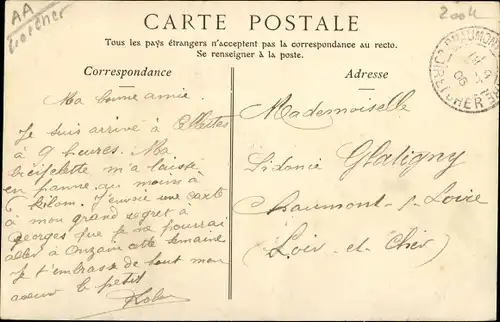 AA
CARTE POSTALE
Tous les pays étrangers n'acceptent pas la correspondance au recto.
Se renseigner à la poste.
Correspondance
Adresse
Ma bonne amie.
Je suis arrivé à
à 9 heures. Ma
bicifelette m'a laissé
en panne au moins à
6 kilom. J'envoie une carte
à mon grand regret à
Georges que je ne pourrai
aller à Onzain cette semaine
Je t'embrasse de tout mon
coeur le petit
Mademoiselle
Sidonie Glatigny
Chaumont-s-Loire
Loir-et-Cher